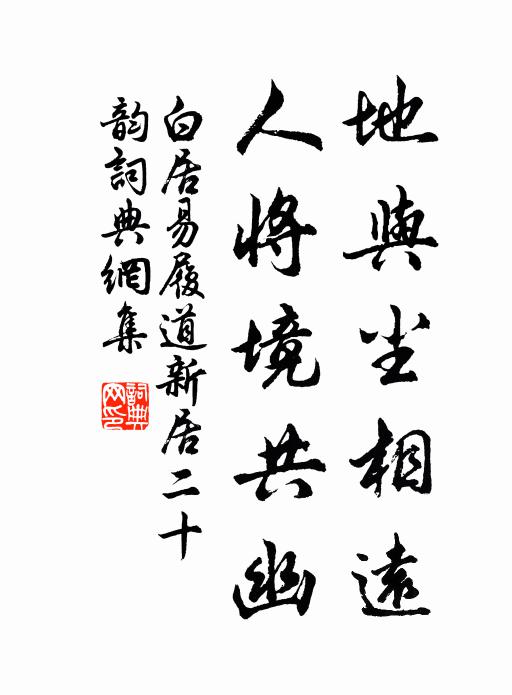 地與尘相遠
人將境共幽
白居易履道新居二十
韵詞典網集
詞典網印